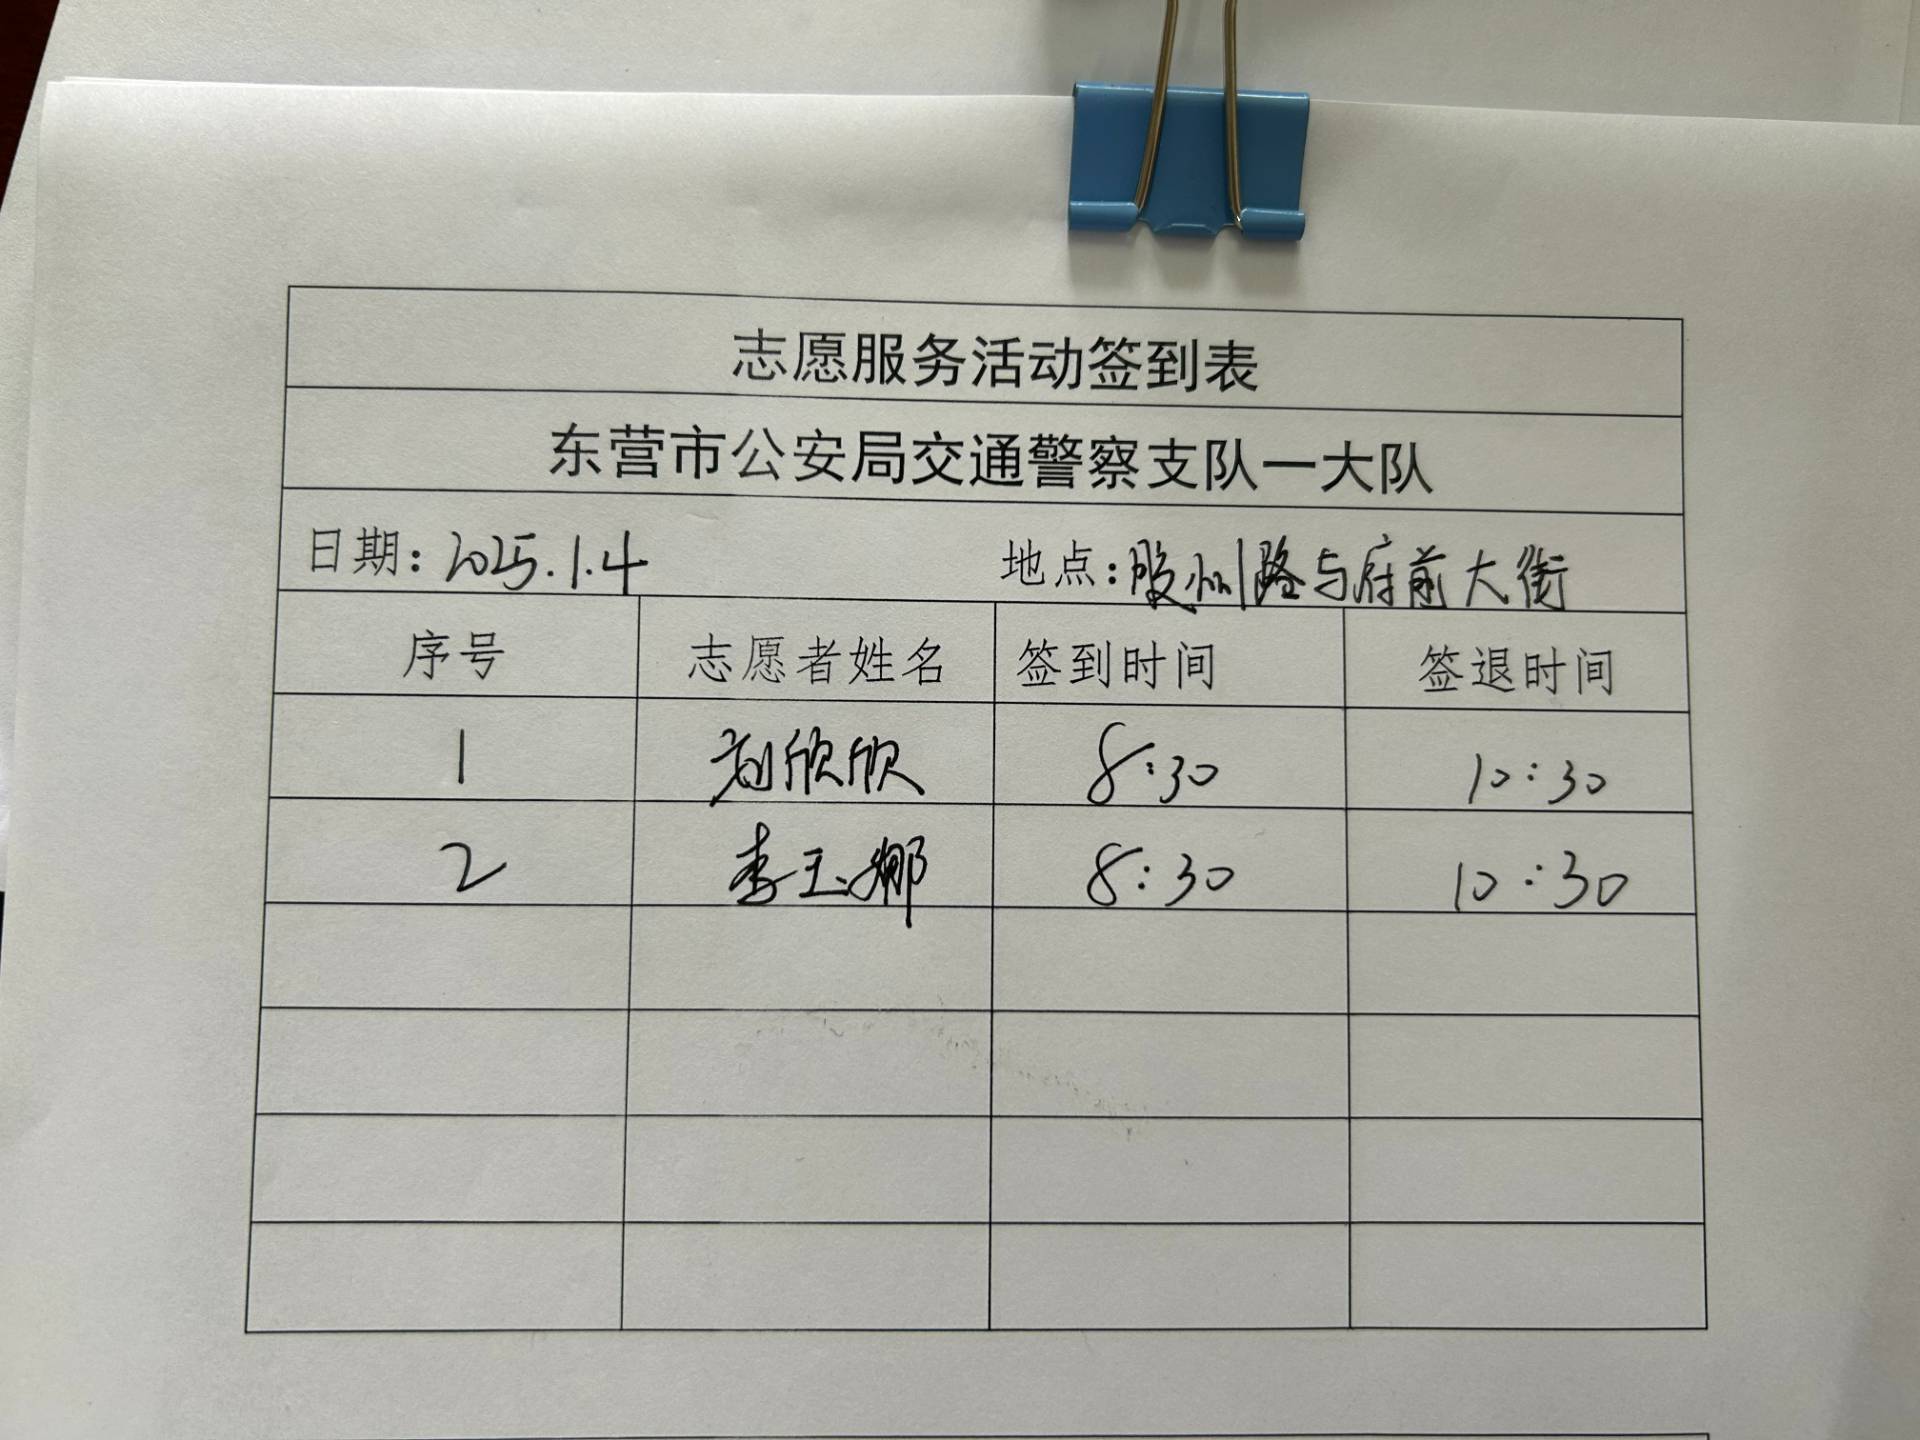 志愿服务活动签到表
东营市公安局交通警察支队一大队
日期：2025.1.4 地点：胶州路与府前大街
序号 志愿者姓名 签到时间 签退时间
1 刘欣欣 8:30 10:30
2 李玉娜 8:30 10:30